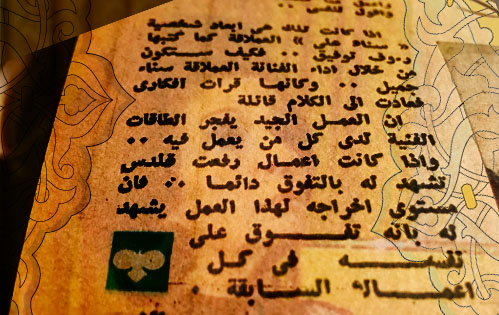 واقول لنفسي ..
اذا كانت تلك هي ابعاد شخصية
« سناء على » العملاقة كما كتبها
رءوف توفيق .. فكيف ستكون
من خلال اداء الفنانة العملاقة سناء
جميل .. وكأنها قرات افكارى
فعادت الى الكلام قائلة
ان العمل الجيد يفجر الطاقات
الفنية لدى كل من يعمل فيه ..
واذا كانت اعمال رفعت قلدس
تشهد له بالتفوق دائما .. فان
مستوى اخراجه لهذا العمل يشهد
له بانه تفوق على
نفسه فى كل
اعماله السابقة .